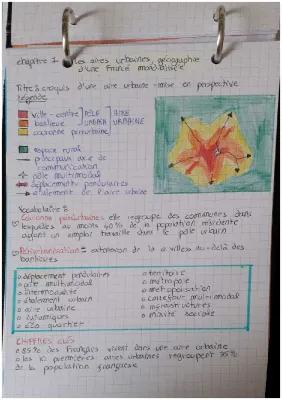 chapitre 1: les aires urbaines, géographie
d'une France mondialisée
Titre: croquis d'une aire urbaine - mise en perspective
Légende
ville-centre PÔLE AIRE
banlieue URBAIN URBAINE
couronne périurbaine
espace rural
principaux axe de
communication
pôle multimodal
déplacements pendulaires
étalement de l'aire urbaine
Vocabulaire:
Couronne périurbaine: elle regroupe des communes dans
lesquelles au moins 40% de la population résidente
ayant un emploi travaille dans le pôle urbain
Périurbanisation = extension de la ville au-delà des
banlieues
déplacement pendulaires
pôle multimodal
intermodalité
étalement urbain
aire urbaine
éco quartier
territoire
métropole
métropolisation
carrefour multimodal
infrastructures
mixité sociale
CHIFFRES CLÉS
85% des Français vivent dans une aire urbaine
les 10 premières aires urbaines regroupent
de la population française